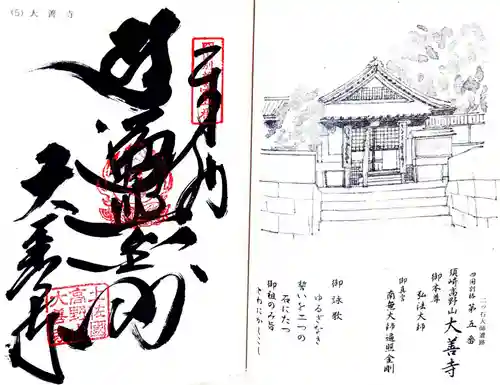 (5) 大善寺
遍照金剛
大善寺
土佐國
高野
大善寺
二ッ石大師遺跡
四国別格 第五番
須崎高野山 大善寺
御本尊
弘法大師
御真言
南無大師遍照金剛
御詠歌
ゆるぎなき
誓いを二つの
石にたつ
御祖のみ旨